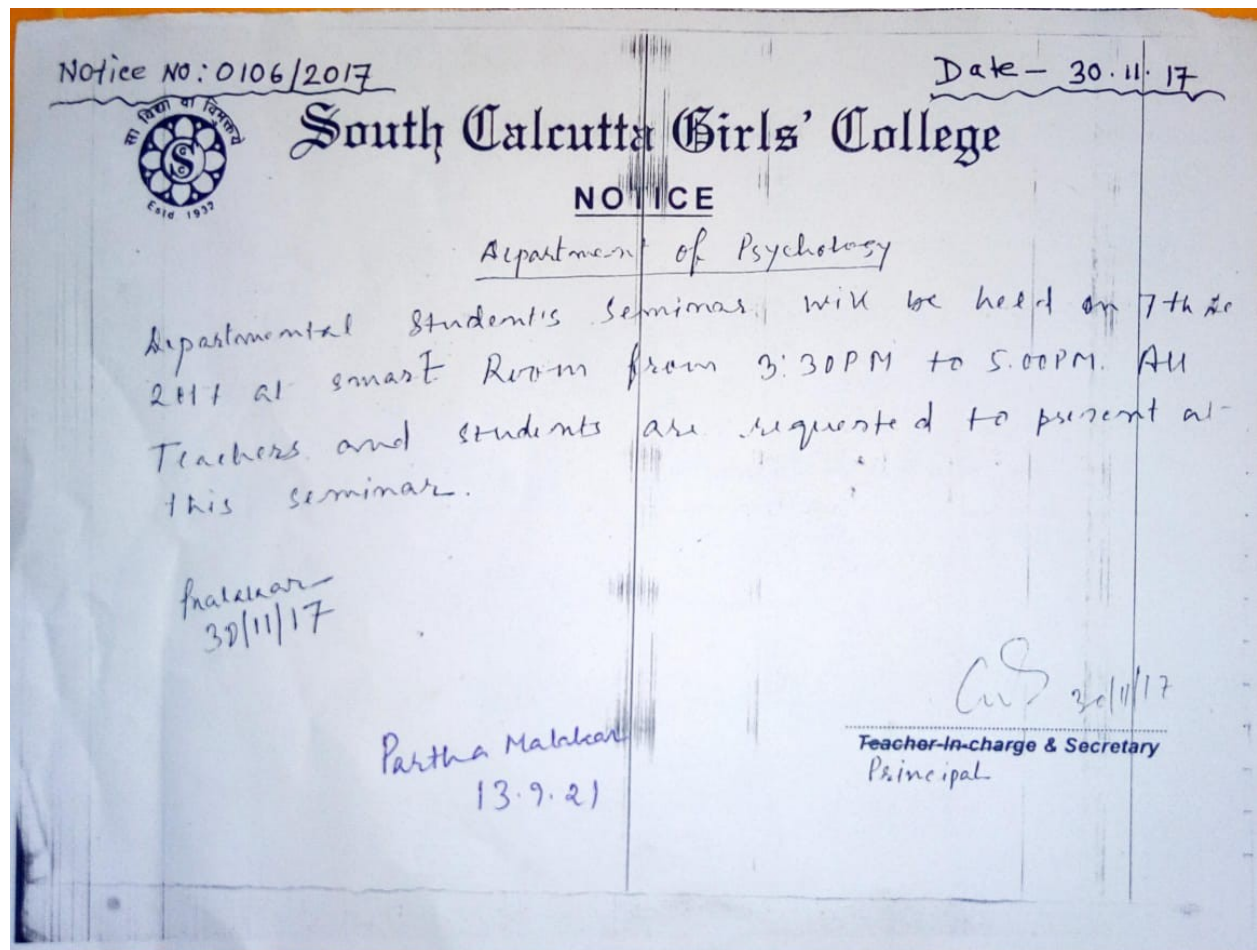 Notice NO: 0106/2017
Date - 30.11.17
सा विद्या या विमुक्तये
S
Estd 1932
South Calcutta Girls' College
NOTICE
Department of Psychology
Departmental Student's Seminar will be held on 7th De
2017 at smart Room from 3:30PM to 5.00PM. All
Teachers and students are requested to present at
this seminar.
PMalakar
30/11/17
30/11/17
Teacher-In-charge & Secretary
Principal
Partha Malakar
13.9.21